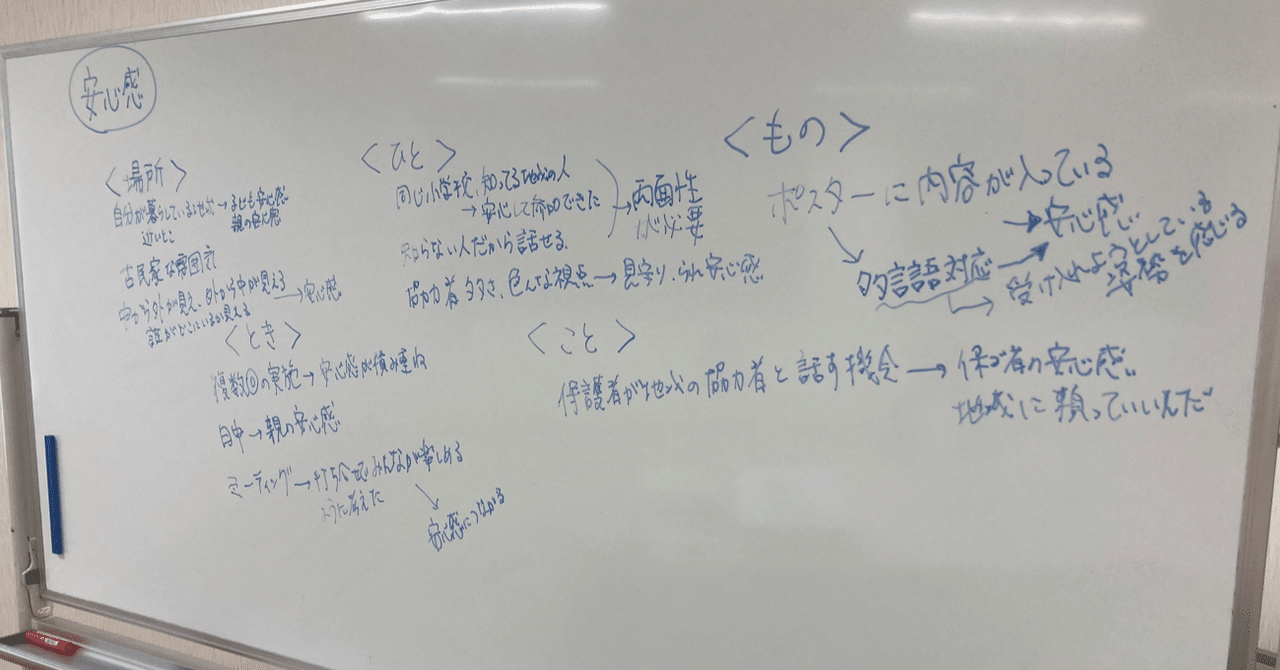 安心感
<場所>
自分が暮らしている地域→子ども安心感
近いとこ 親の安心感
古民家な雰囲気
中から外が見え、外から中が見える→安心感
誰がどこにいるか見える
<とき>
複数回の実施→安心感が積み重ね
日中→親の安心感
ミーティング→打ち合せでみんなが楽しめる
ように考えた
安心感につながる
<ひと>
同じ小学校、知ってる地域の人
→安心して参加できた
知らない人だから話せる
→両面性
が必要
協力者多さ、色んな視点→見守り、られ安心感
<こと>
保護者が地域の協力者と話す機会→保ゴ者の安心感
地域に頼っていいんだ
<もの>
ポスターに内容が入っている
→安心感
多言語対応
受け入れようとしている
準備を感じる